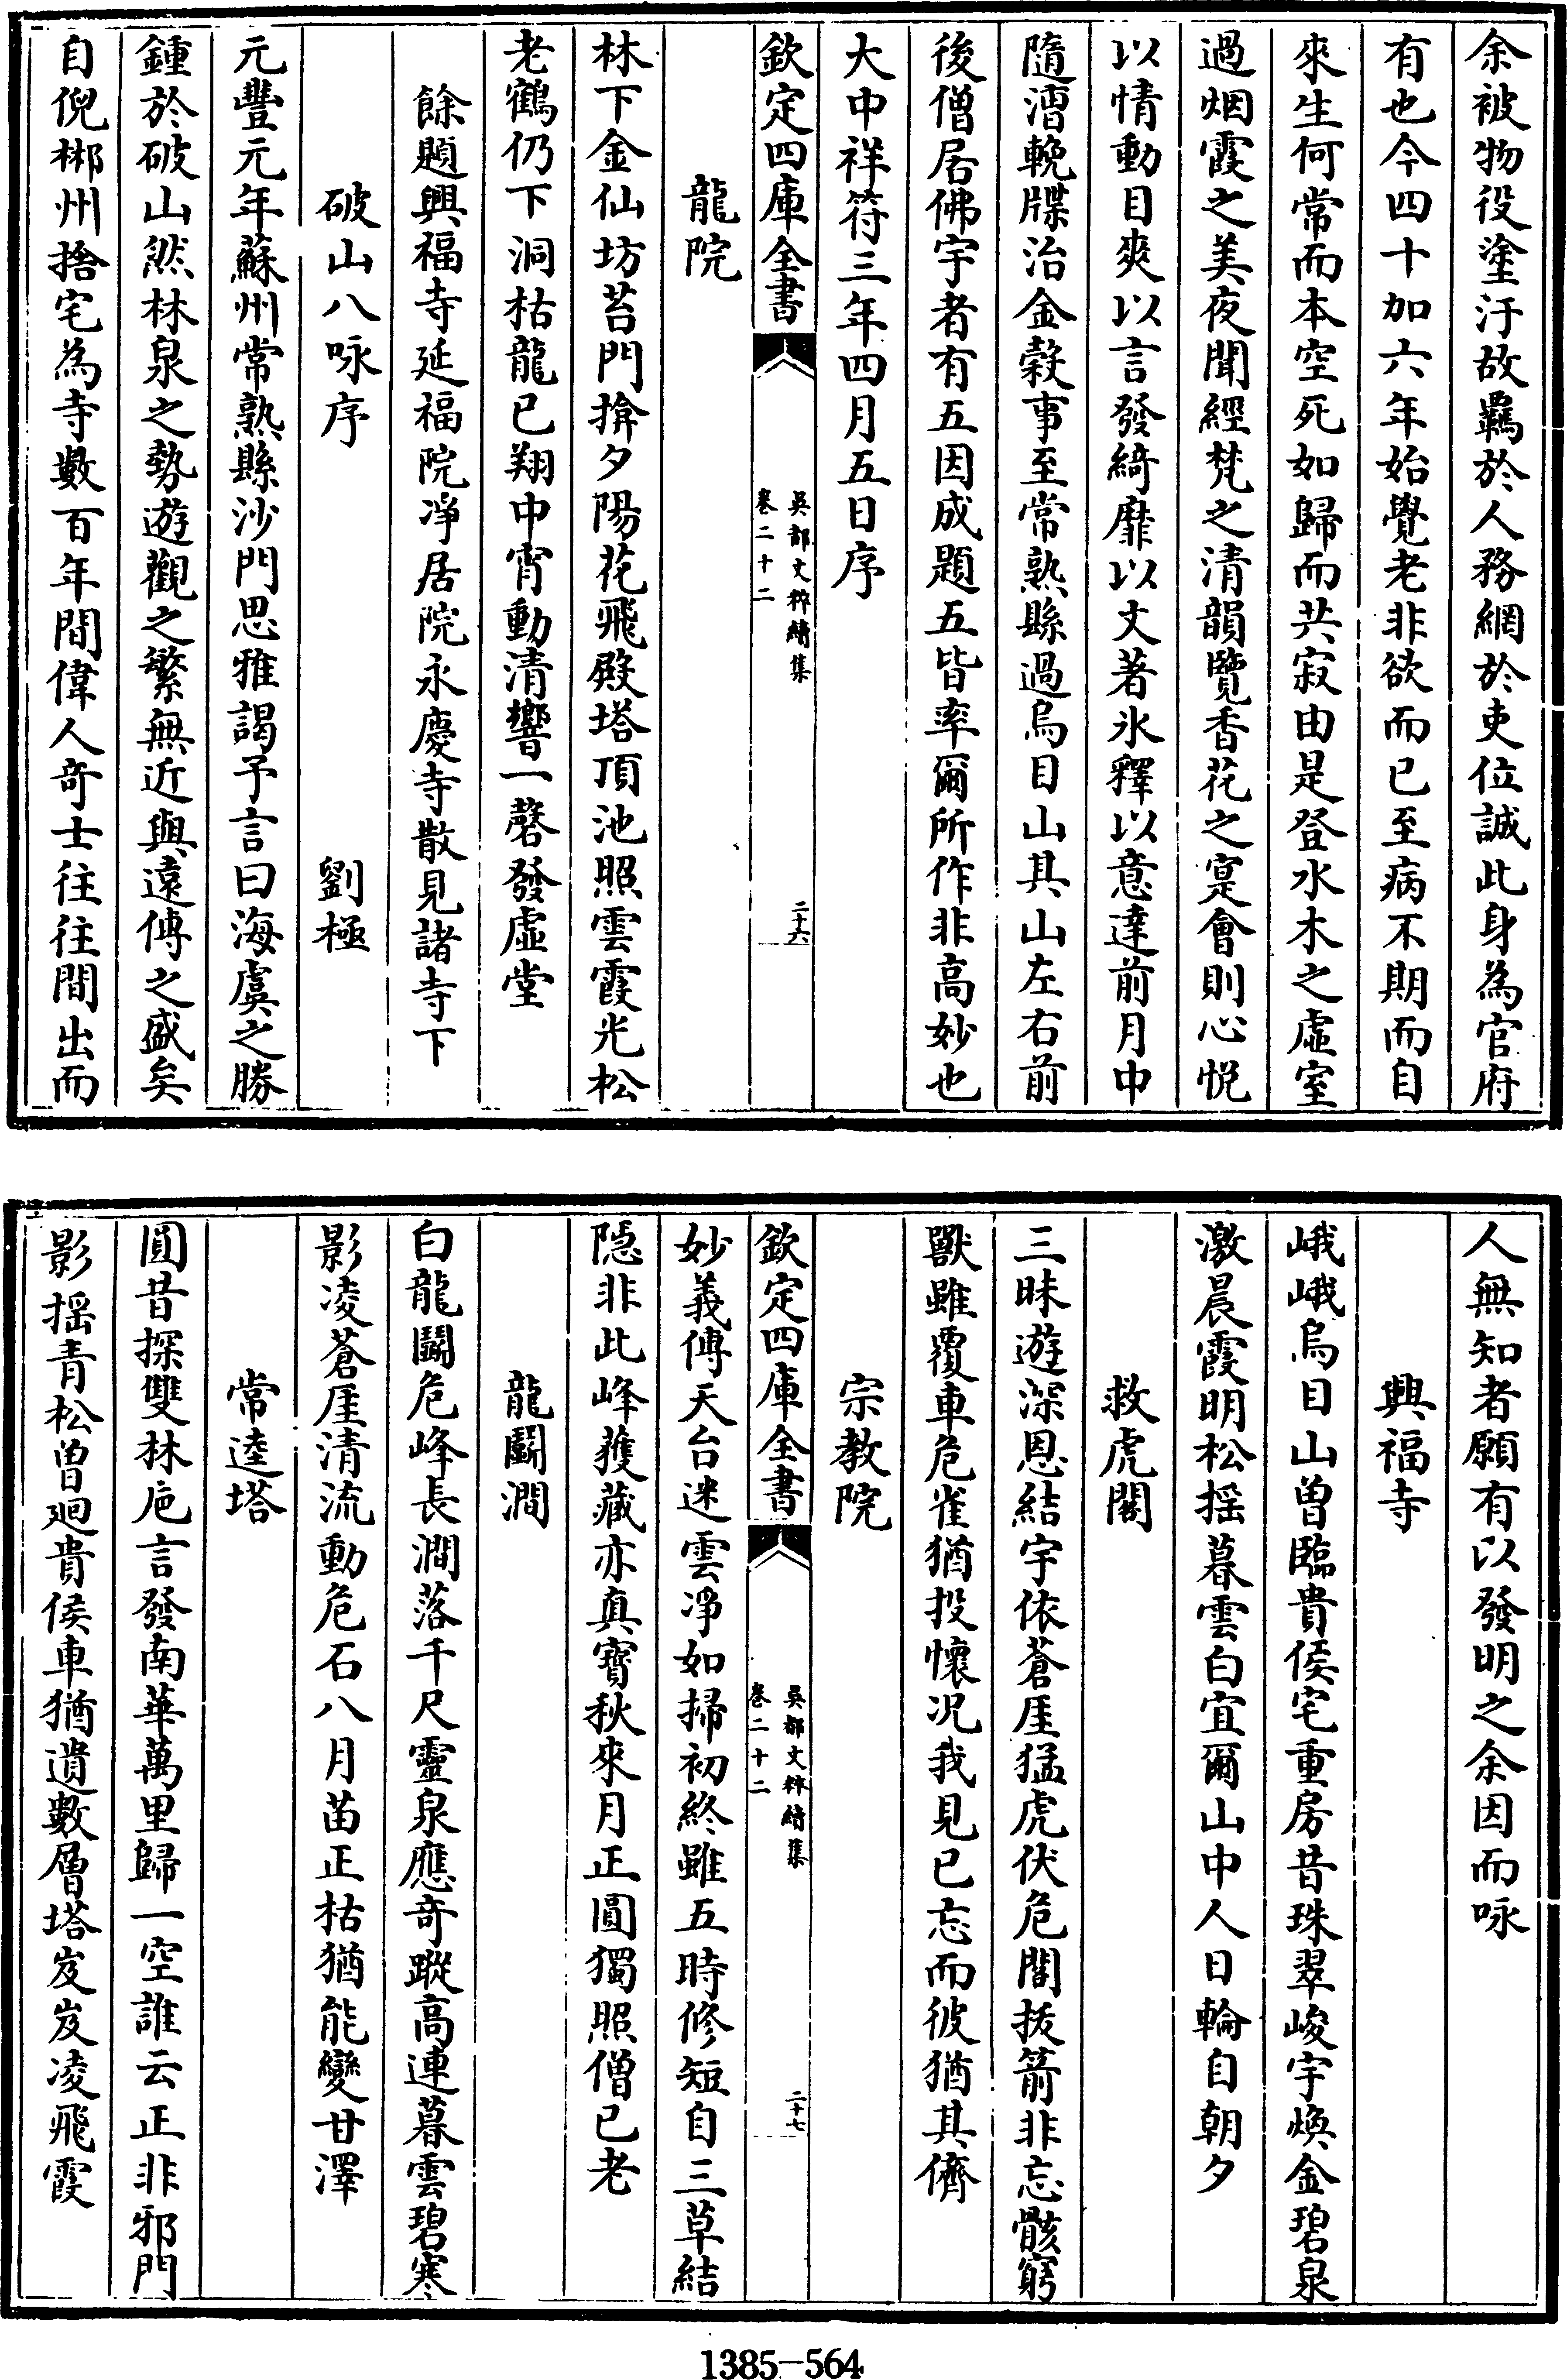 余被物役塗汙故羈於人務網於吏位誠此身為官府
有也今四十加六年始覺老非欲而已至病不期而自
來生何常而本空死如歸而共寂由是登水木之虛室
過烟霞之美夜聞經梵之清韻覽香花之寔會則心悦
以情動目爽以言發綺靡以文著氷釋以意達前月中
隨漕輓牒治金穀事至常熟縣過烏目山其山左右前
後僧居佛宇者有五因成題五皆率爾所作非高妙也
大中祥符三年四月五日序
欽定四庫全書
吳都文粹續集
卷二十二
二十六
龍院
林下金仙坊苔門揜夕陽花飛殿塔頂池照雲霞光松
老鶴仍下洞枯龍已翔中宵動清響一磬發虛堂
餘題興福寺延福院淨居院永慶寺散見諸寺下
破山八咏序
劉極
元豐元年蘇州常熟縣沙門思雅謁予言曰海虞之勝
鍾於破山然林泉之勢遊觀之繁無近與遠傳之盛矣
自倪郴州捨宅為寺數百年間偉人奇士往往間出而
人無知者願有以發明之余因而咏
興福寺
峨峨烏目山曾臨貴侯宅重房昔珠翠峻宇煥金碧泉
激晨霞明松揺暮雲白宜爾山中人日輪自朝夕
救虎閣
三昧遊深恩結宇依蒼厓猛虎伏危閣抜箭非忘骸窮
獸雖覆車危雀猶投懷况我見已忘而彼猶其儕
宗教院
欽定四庫全書
吳都文粹續集
卷二十二
二十七
妙義傳天台迷雲淨如掃初終雖五時修短自三草結
隠非此峰蓷藏亦真寳秋來月正圓獨照僧已老
龍鬬澗
白龍鬬危峰長澗落千尺靈泉應奇蹤高連暮雲碧寒
影凌蒼厓清流動危石八月苗正枯猶能變甘澤
常逵塔
圓昔探雙林巵言發南華萬里歸一空誰云正非邪門
影揺青松曽廻貴侯車猶遺數層塔岌岌凌飛霞
1385-564